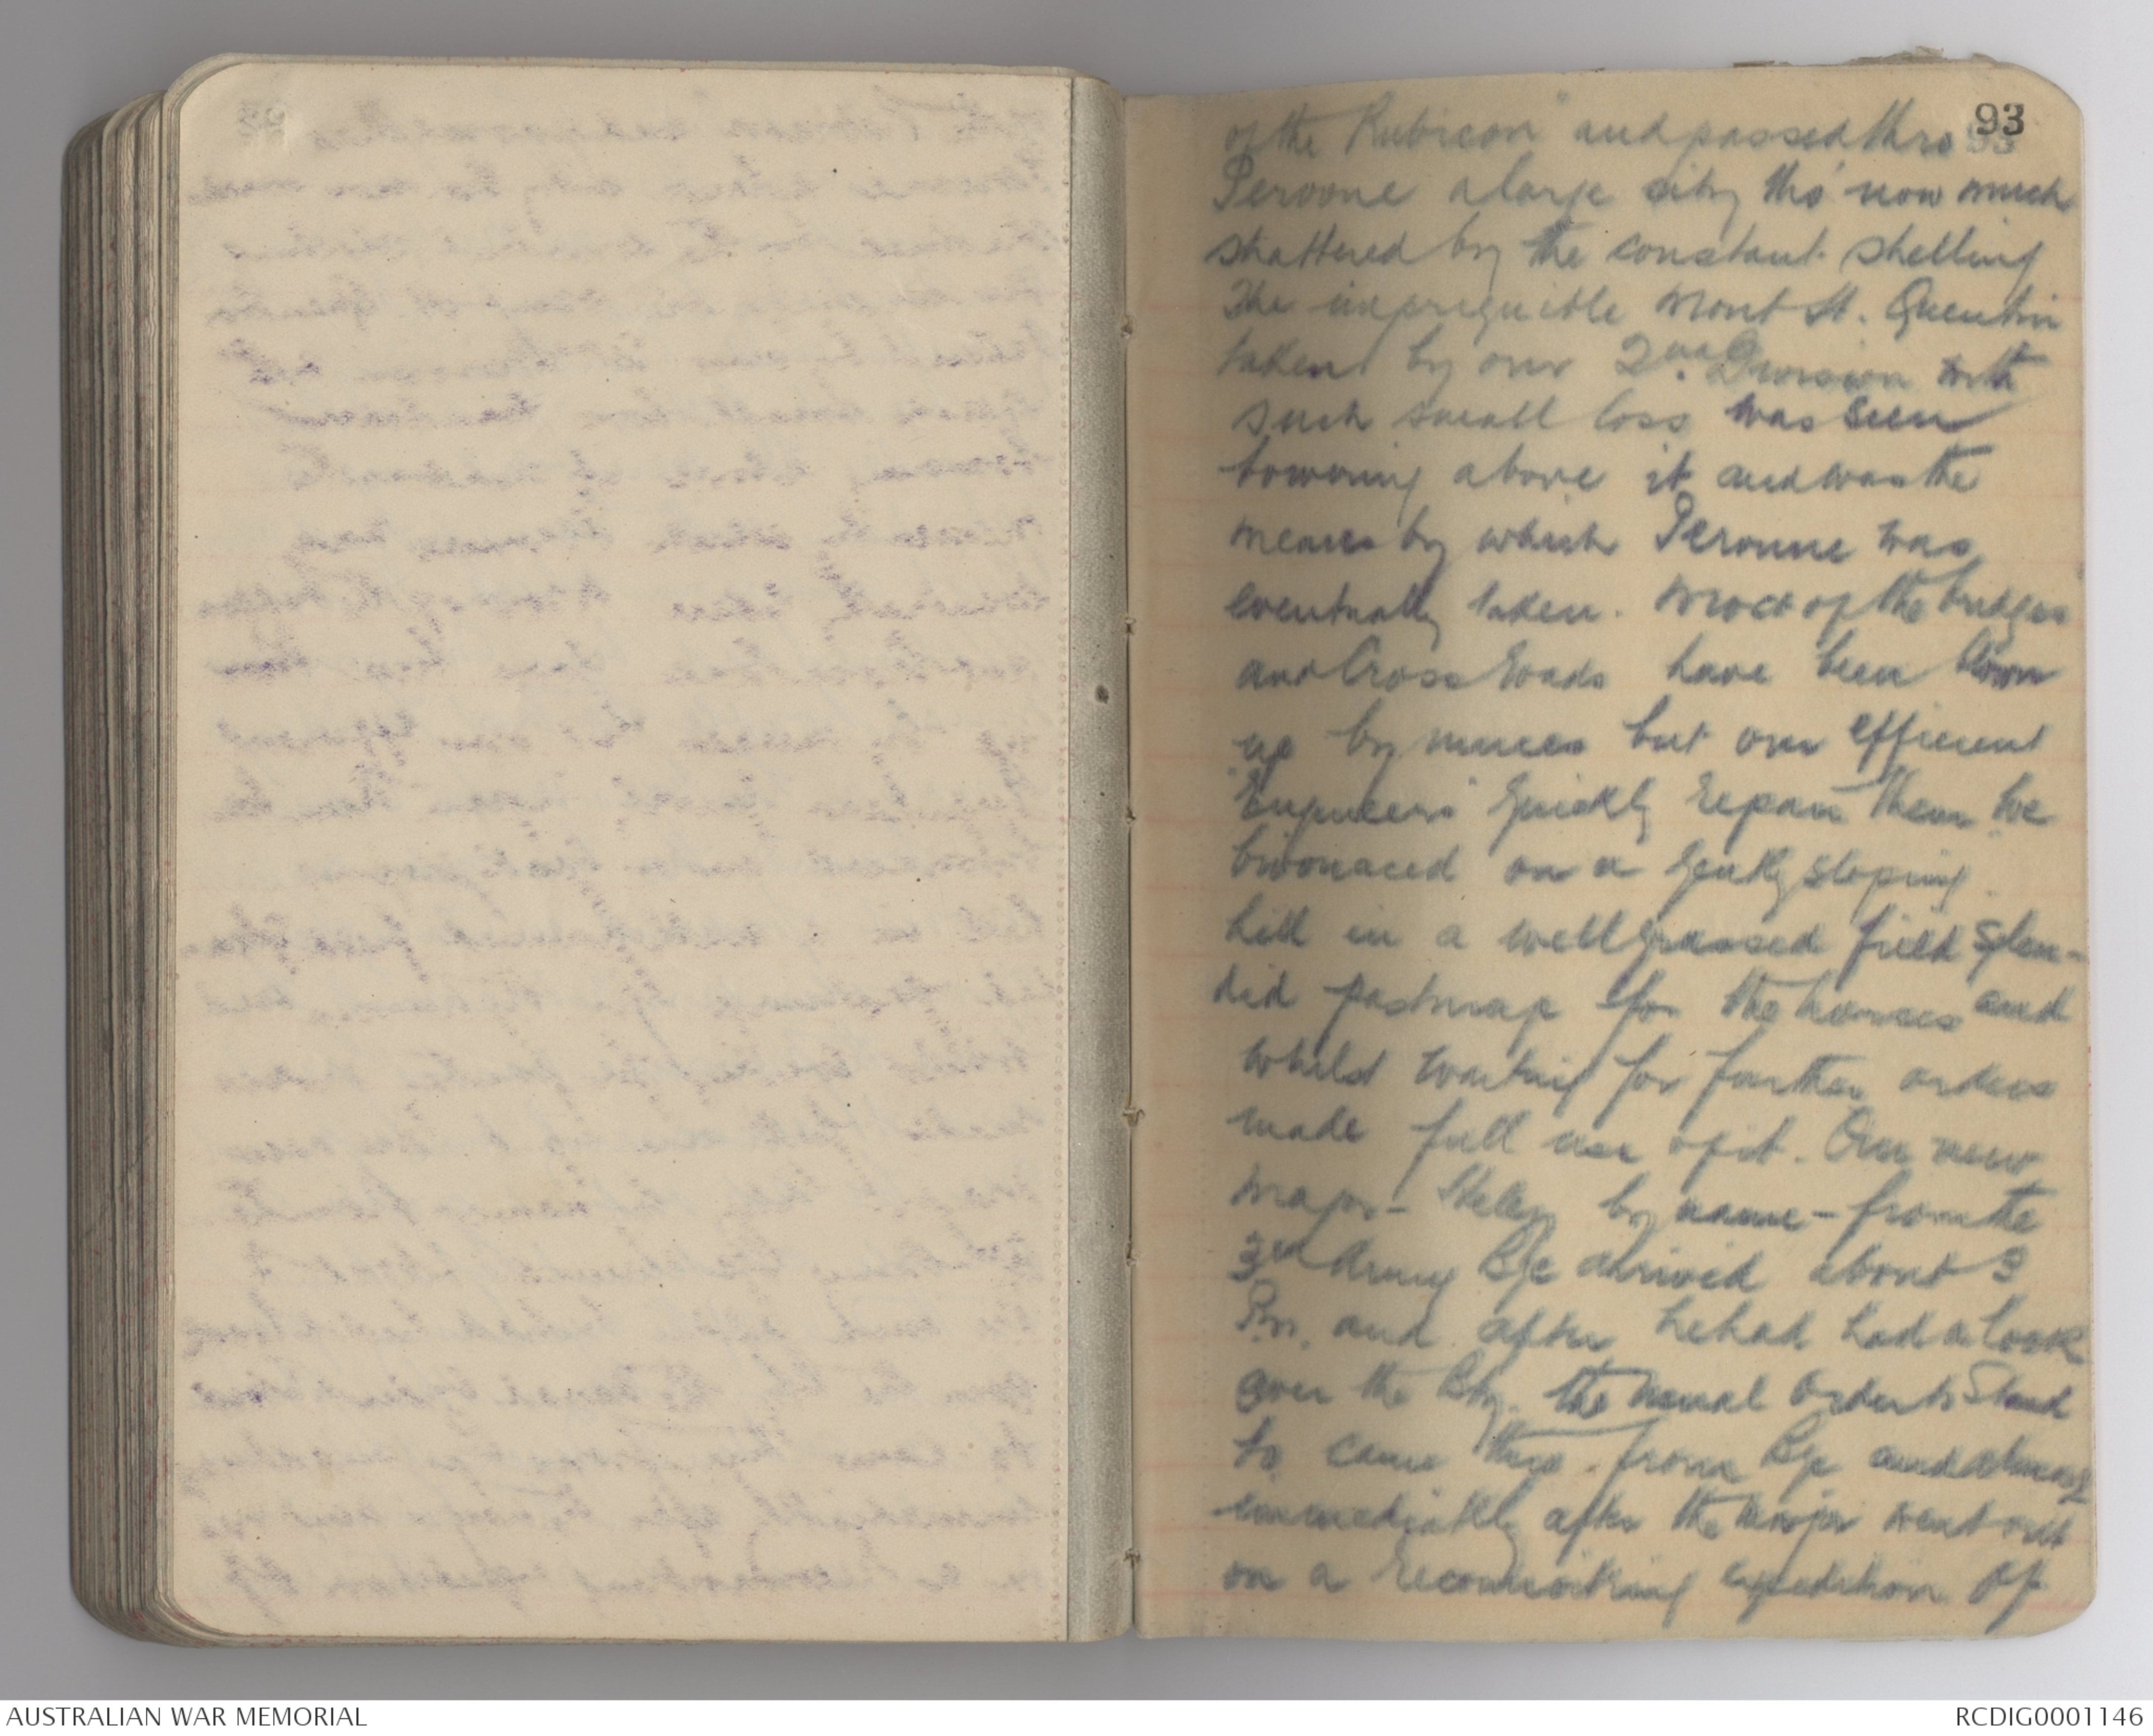 93
of the Rubicon" and passed thro
Peronne a large city tho' now much
shattered by the constant shelling
The impregnible Mont St. Quentin
taken by our 2nd. Division with
such small loss was seen
towering above it and was the
means by which Peronne was
eventually taken. Most of the bridges
and Cross Roads have been blown
up by mines but our efficient
"Engineers" quickly repair them. We
bivouaced on a gently sloping
hill in a well grassed field splen-
did pasturage for the horses and
whilst waiting for further orders
made full use of it. Our new
Major - by name - from the
3rd Army Bge arrived about 3
Pm. and after he had had a look
over the Bty. the usual Order to Stand
to came thro. from Bge and almost
immediately after the Major went out
on a reconnoitring expedition of
AUSTRALIAN WAR MEMORIAL
RCDIG0001146